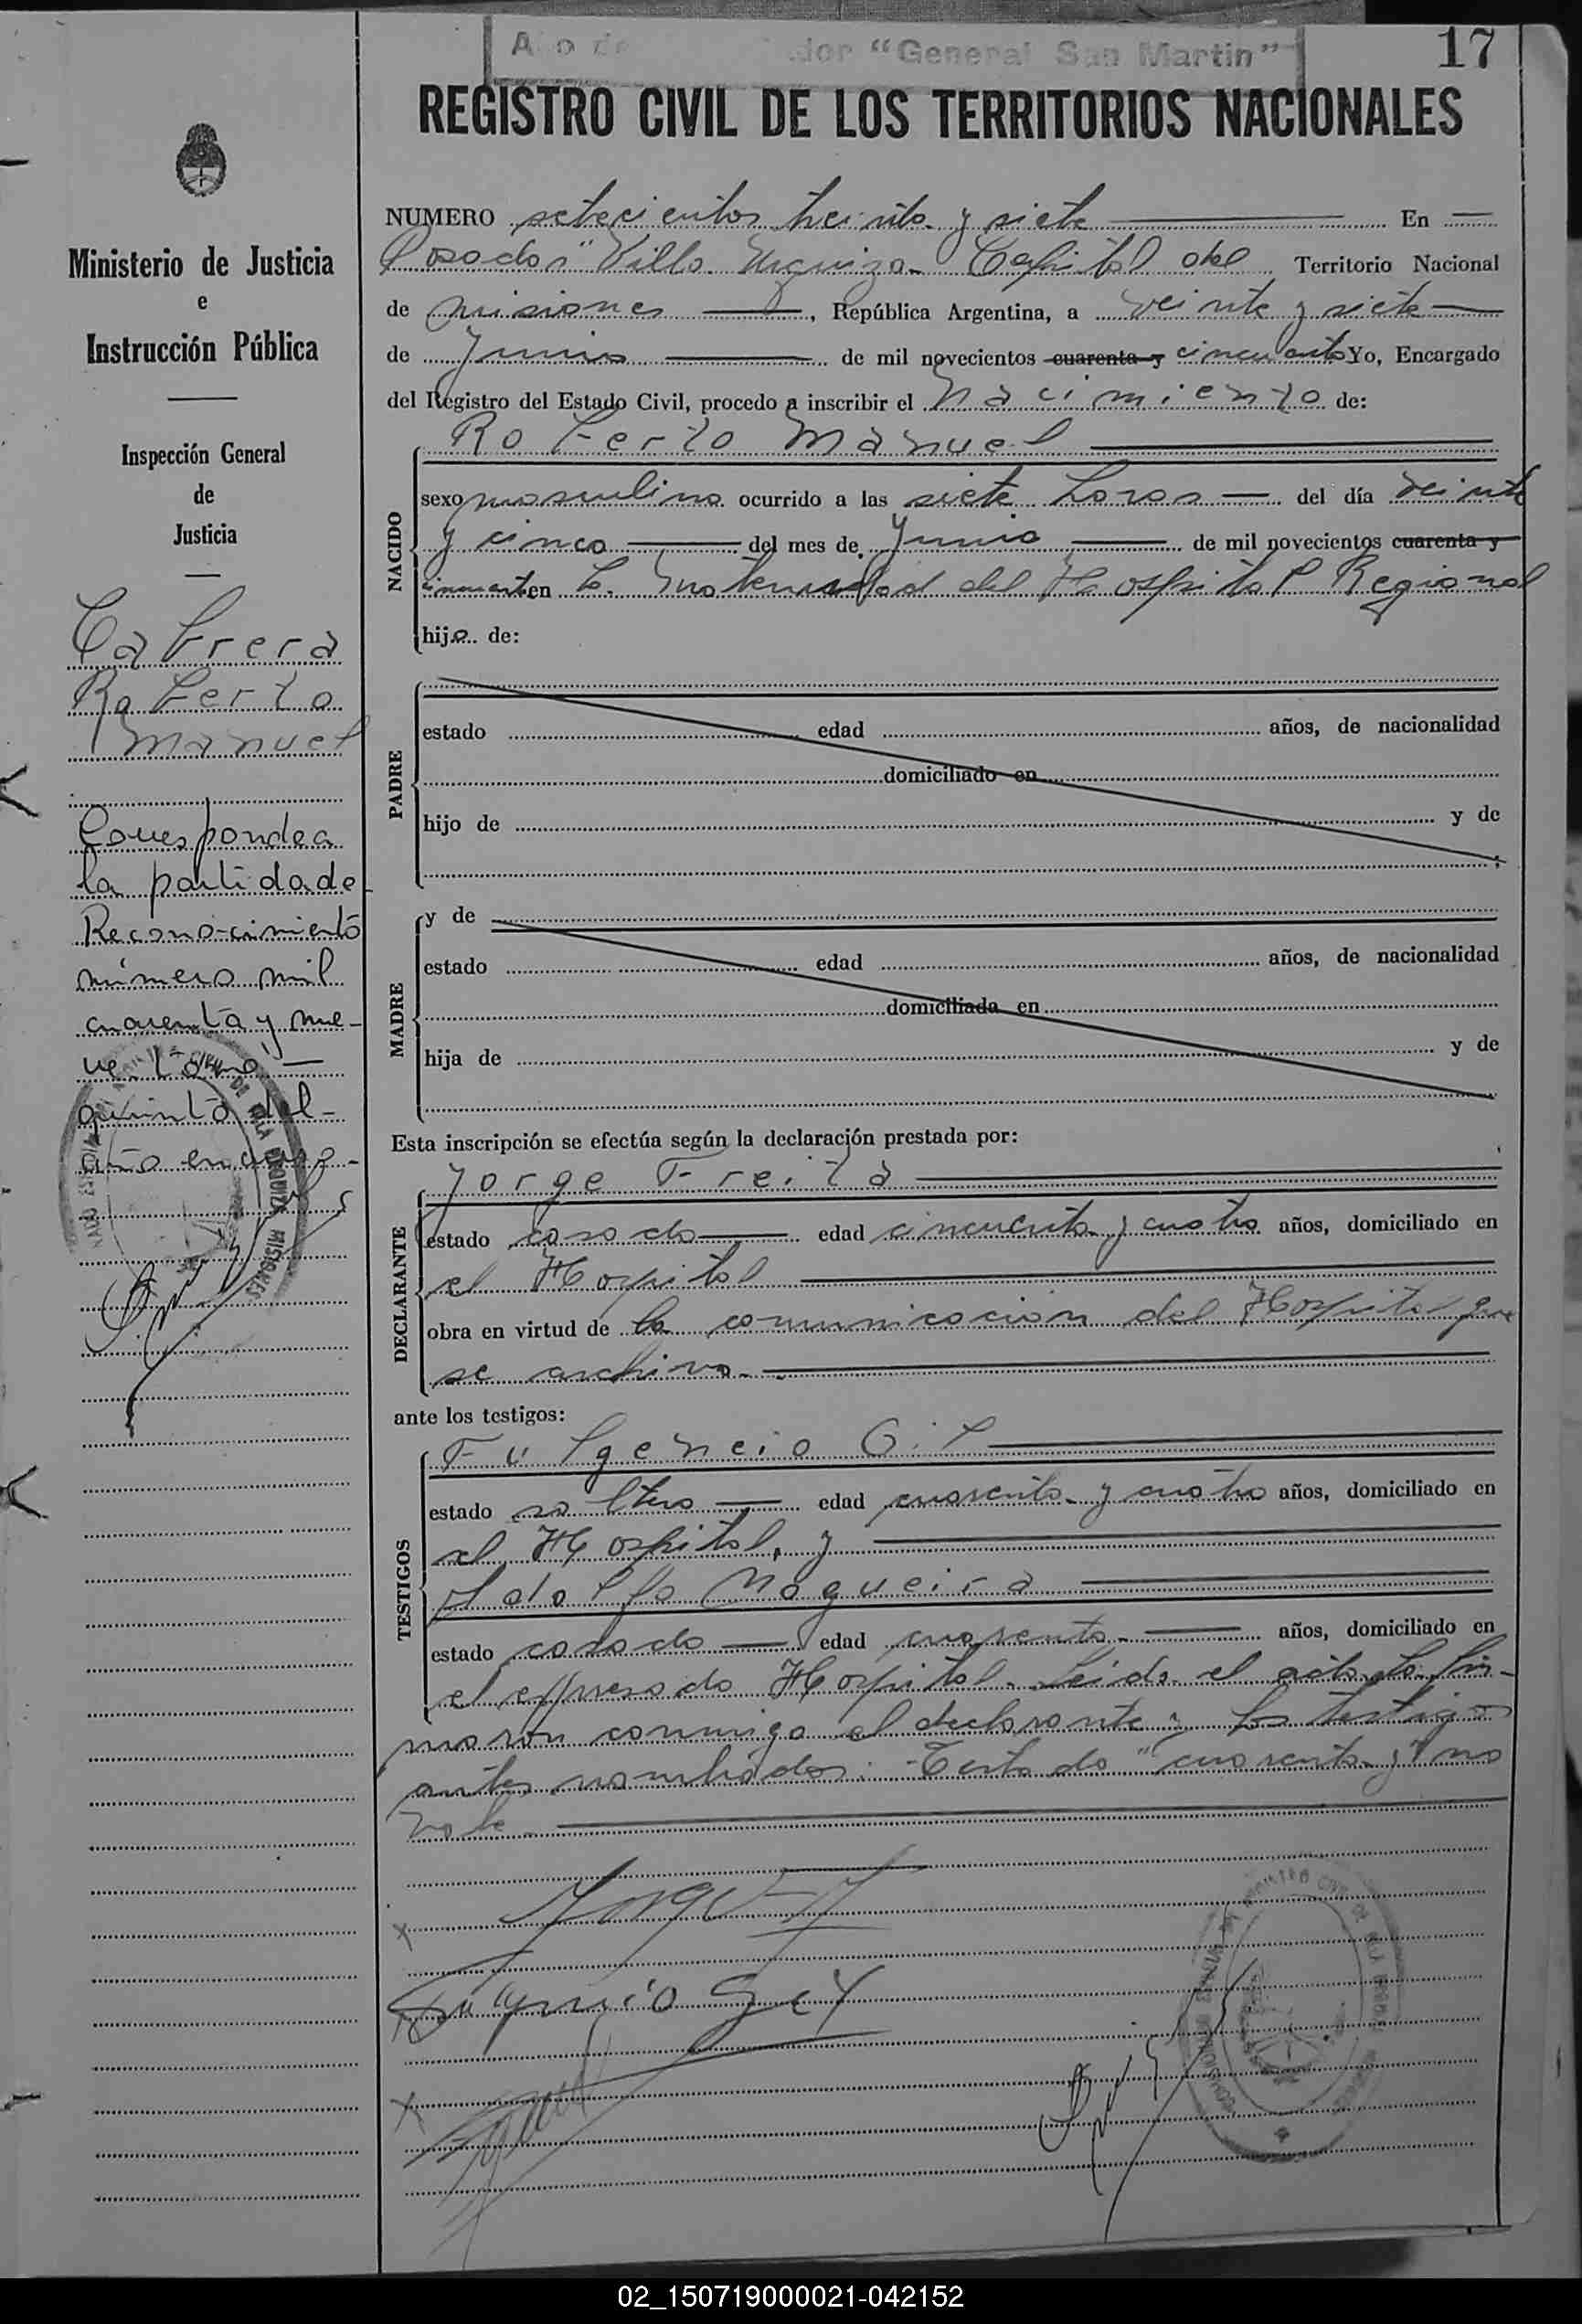 17
dor "General San Martin"
REGISTRO CIVIL DE LOS TERRITORIOS NACIONALES
Ministerio de Justicia
e
Instrucción Pública
Inspección General
de
Justicia
Cabrera
Roberto
Manuel
Corresponde a
la partida de
Reconocimiento
número mil
cuarenta y nue-
ve. tomo —
quinto del-
año en curso-
NUMERO setecientos treinta y siete En
Posadas "Villa Urquiza- Capital del Territorio Nacional
de misiones, República Argentina, a veinte y siete
de Junio de mil novecientos cuarenta y cincuenta Yo, Encargado
del Registro del Estado Civil, procedo a inscribir el Nacimiento de:
Roberto Manuel
NACIDO
sexo masculino ocurrido a las siete horas — del día veinte
y cinco del mes de Junio de mil novecientos cuarenta y
cincuenta en la Maternidad del Hospital Regional
hijo de:
PADRE
estado edad años, de nacionalidad
domiciliado en
hijo de y de
MADRE
y de
estado edad años, de nacionalidad
domiciliada en
hija de y de
Esta inscripción se efectúa según la declaración prestada por:
DECLARANTE
Jorge Freita
estado casado edad cincuenta y cuatro años, domiciliado en
el Hospital
obra en virtud de la comunicación del Hospital que
se archiva.
ante los testigos:
TESTIGOS
Fulgencio Gil
estado soltero edad cuarenta y cuatro años, domiciliado en
el Hospital, y
Adolfo Nogueira
estado casado edad cuarenta años, domiciliado en
el expresado Hospital. Leida el acta la fir-
maron conmigo el declarante y los testigos
antes nombrados. - Testado "cuarenta y" no
vale
02_150719000021-042152